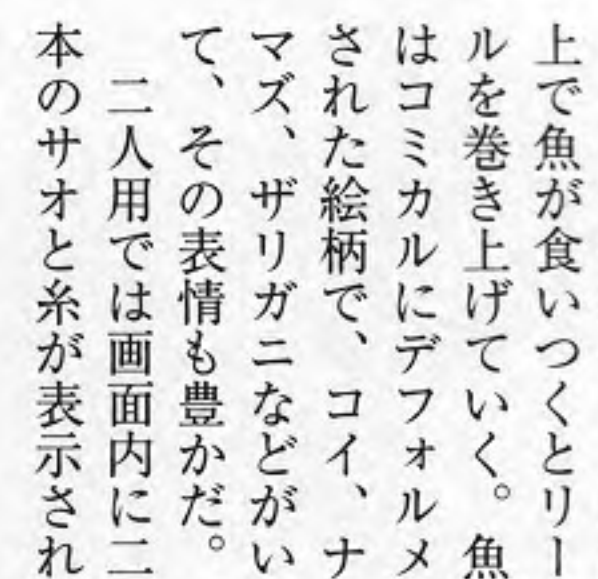 上で魚が食いつくとリー
ルを巻き上げていく。魚
はコミカルにデフォルメ
された絵柄で、コイ、ナ
マズ、ザリガニなどがい
て、その表情も豊かだ。
　二人用では画面内に二
本のサオと糸が表示され